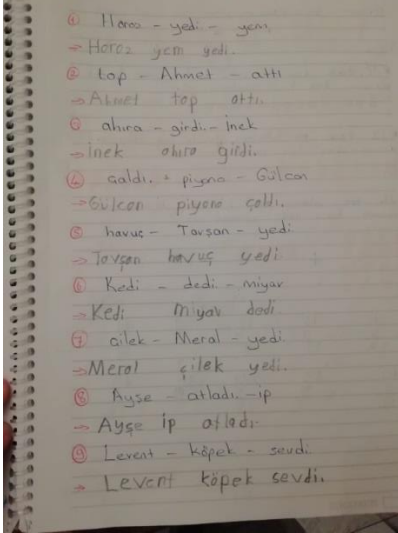 1 Horoz - yedi - yem
→ Horoz yem yedi.
2 top - Ahmet - attı
→ Ahmet top attı.
3 ahıra - girdi. - İnek
→ İnek ahıra girdi.
4 çaldı. - piyano - Gülcan
→ Gülcan piyano çaldı.
5 havuç - Tavşan - yedi
→ Tavşan havuç yedi
6 Kedi - dedi - miyav
→ Kedi miyav dedi.
7 çilek - Meral - yedi
→ Meral çilek yedi.
8 Ayşe - atladı. - ip
→ Ayşe ip atladı.
9 Levent - köpek - sevdi.
→ Levent köpek sevdi.